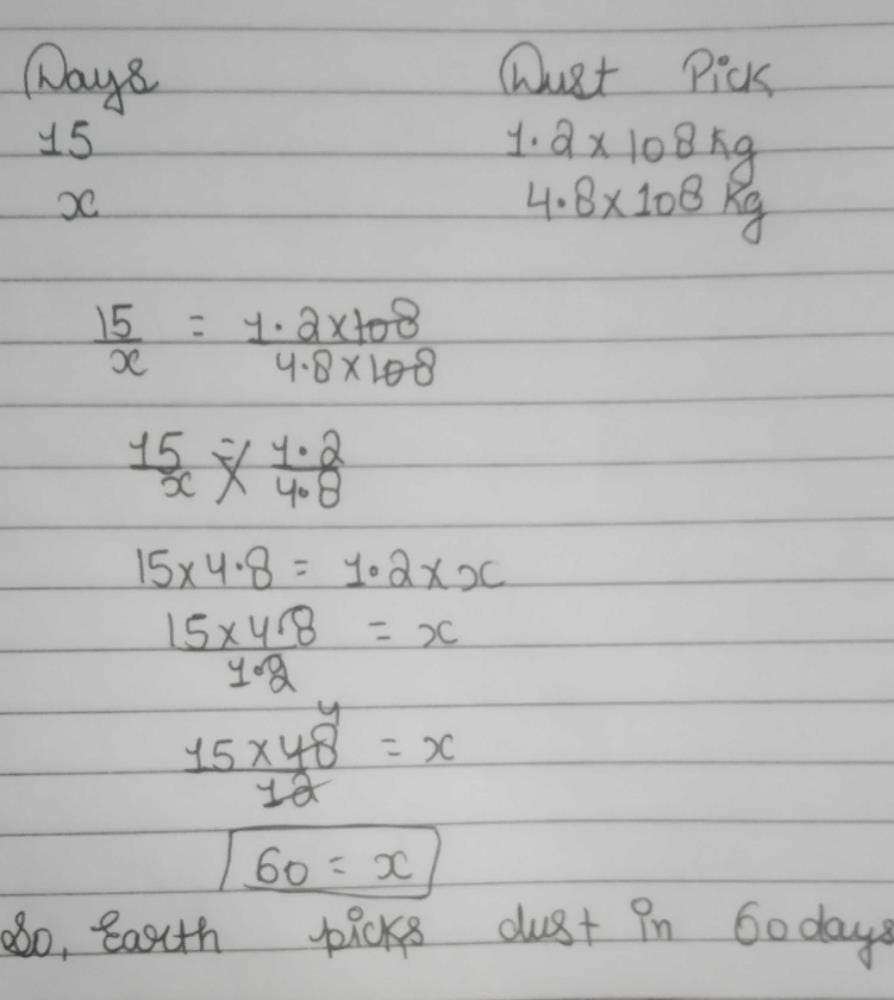 Days Dust Pick
15 1.2 x 108 Kg
x 4.8 x 108 Kg
15/x = 1.2 x 108/4.8 x 108
15/x = 1.2/4.8
15 x 4.8 = 1.2 x x
15 x 4.8/1.2 = x
4
15 x 48/12 = x
60 = x
So, Earth picks dust in 60 days